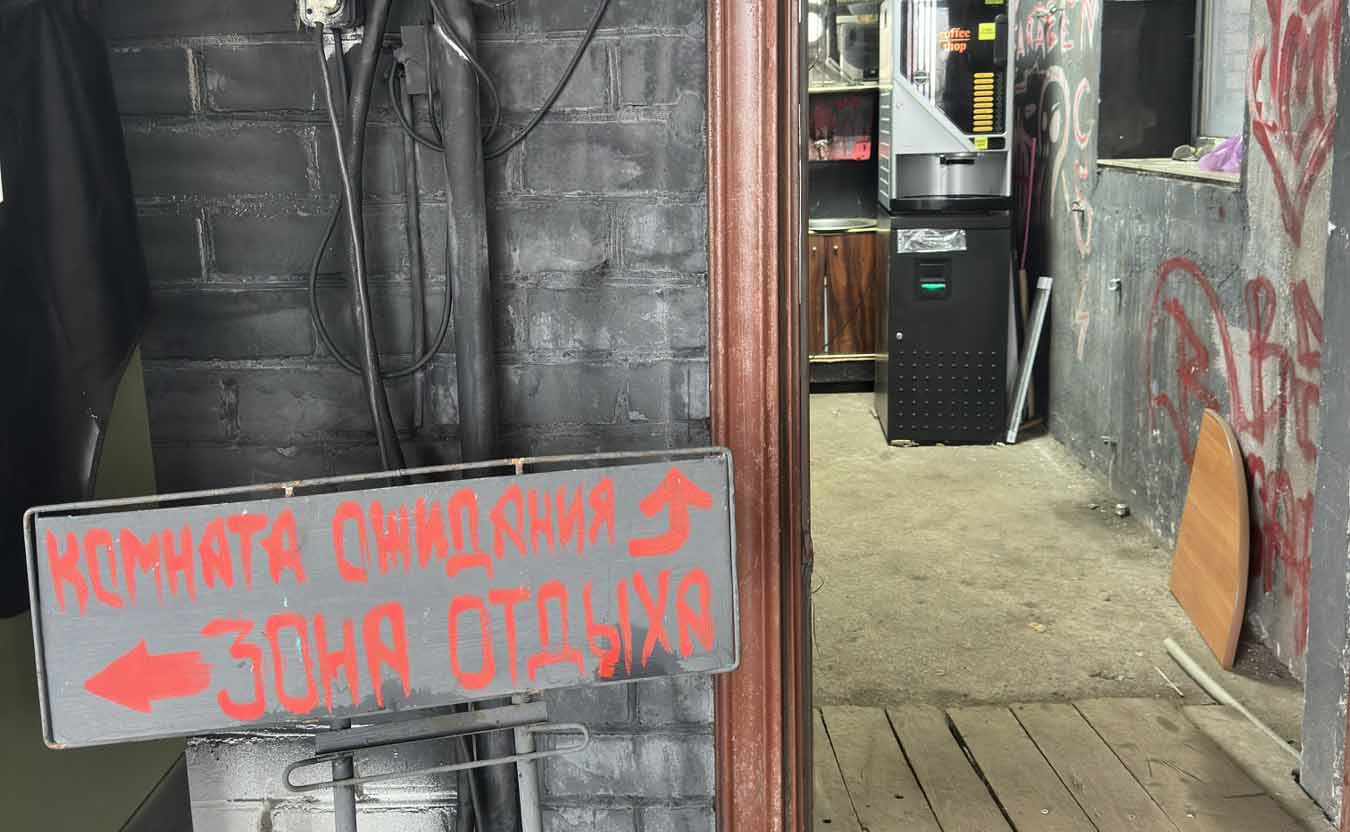 КОМНАТА ОЖИДАНИЯ
ЗОНА ОТДЫХА
coffee
shop